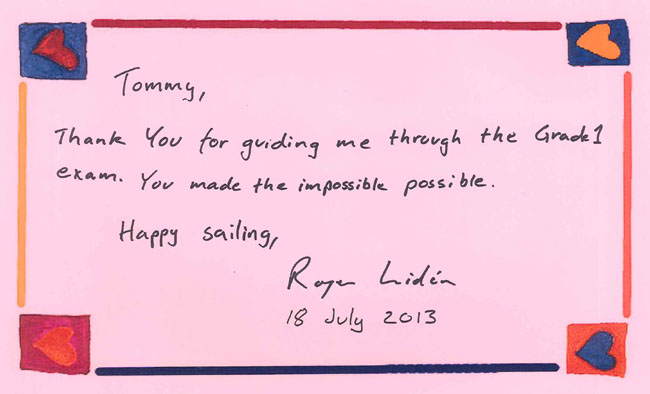 Tommy,
Thank You for guiding me through the Grade 1
exam. You made the impossible possible.
Happy sailing,
Roger Lidén
18 July 2013